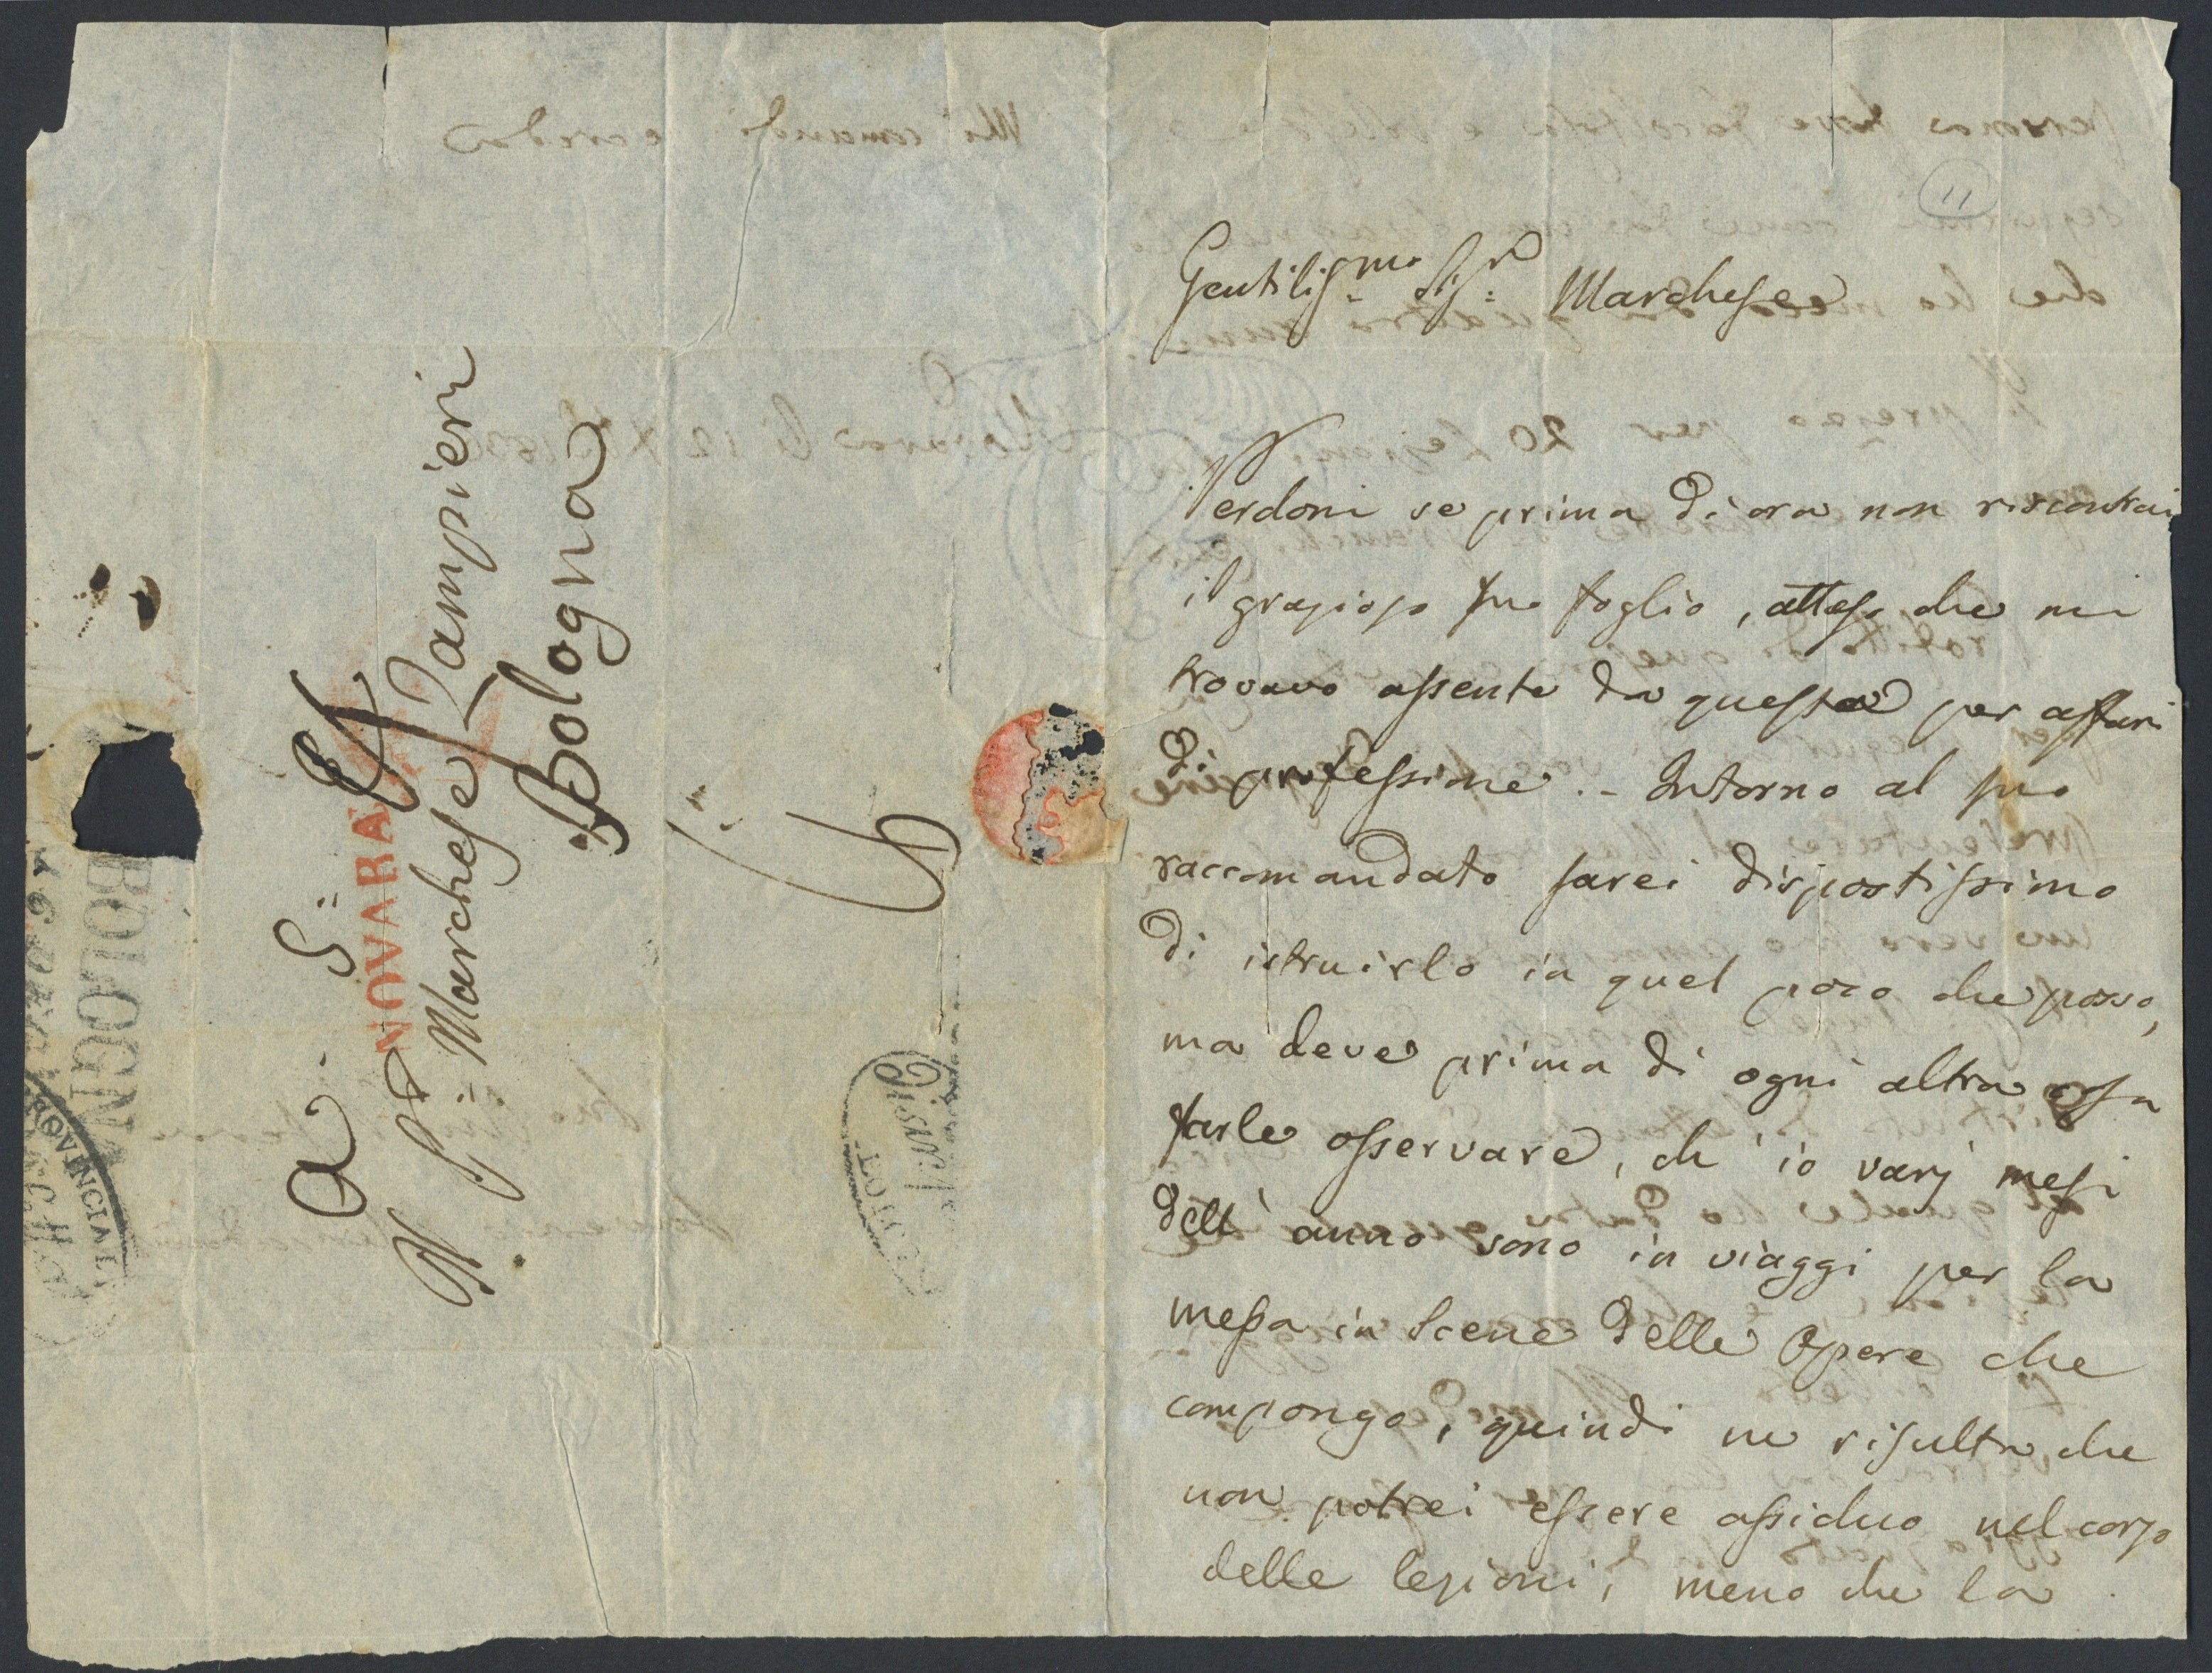 11
Gentilisº Sigr Marchese
Perdoni se prima di ora non riscontrai
il grazioso suo foglio, atteso che mi
trovavo assente da questa per affari
di professione. - Intorno al suo
raccomandato sarei dispostissimo
di istruirlo in quel poco che posso,
ma deve prima di ogni altra cosa
farle osservare, ch'io varj mesi
dell'anno sono in viaggi per la
messa in Scene delle Opere che
compongo, quindi ne risulta, che
non potrei essere assiduo nel corso
delle lezioni, meno che la
A S. E.
Il Sigr Marchese Zampieri
Bologna
NOVARA
BOLOGNA
PROVINCIALI